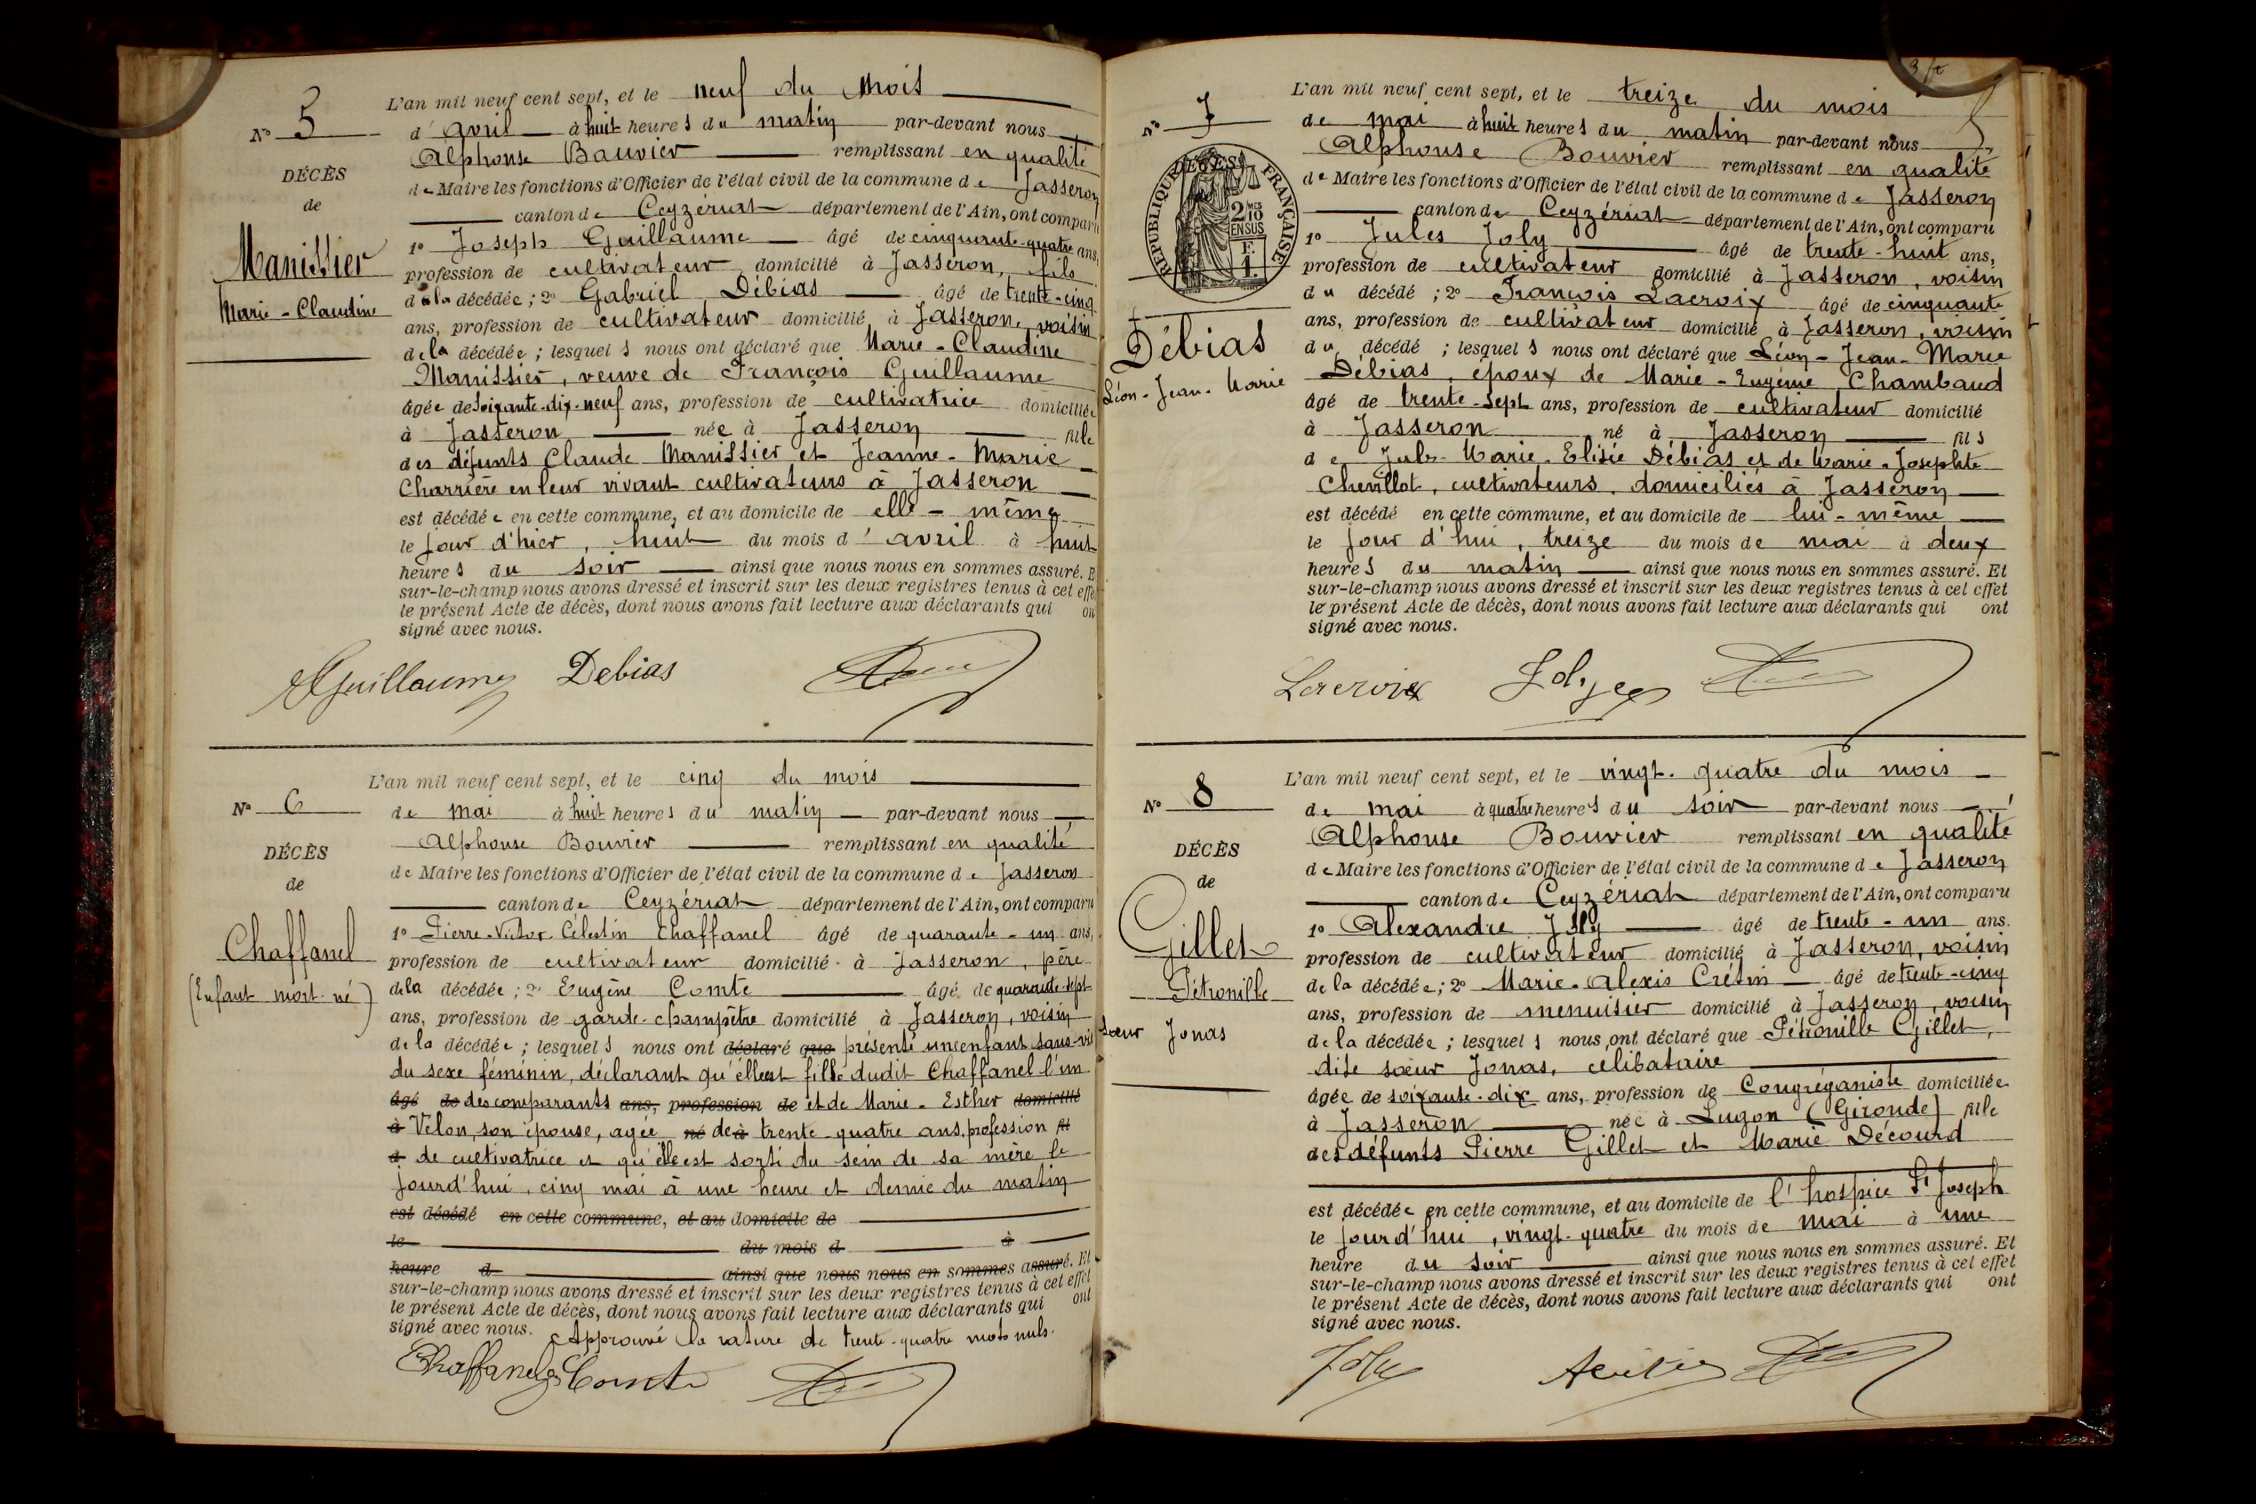 N° 5
DÉCÈS
de
Manissier
Marie-Claudine
L'an mil neuf cent sept, et le neuf du mois
d'avril à huit heures du matin par-devant nous
Alphonse Bouvier remplissant en qualité
de Maire les fonctions d'Officier de l'état civil de la commune de Jasseron
canton de Ceyzériat département de l'Ain, ont comparu
1° Joseph Guillaume âgé de cinquante-quatre ans,
profession de cultivateur domicilié à Jasseron, fils
de la décédée ; 2° Gabriel Débias âgé de trente-cinq
ans, profession de cultivateur domicilié à Jasseron, voisin
de la décédée ; lesquels nous ont déclaré que Marie-Claudine
Manissier, veuve de François Guillaume
âgée de soixante-dix-neuf ans, profession de cultivatrice domiciliée
à Jasseron née à Jasseron fille
des défunts Claude Manissier et Jeanne-Marie
Charrière en leur vivant cultivateurs à Jasseron
est décédée en cette commune, et au domicile de elle-même
le jour d'hier, huit du mois d'avril à huit
heures du soir ainsi que nous nous en sommes assuré. E
sur-le-champ nous avons dressé et inscrit sur les deux registres tenus à cet effet
le présent Acte de décès, dont nous avons fait lecture aux déclarants qui on
signé avec nous.
Guillaume Debias
N° 6
DÉCÈS
de
Chaffanel
(Enfant mort-né)
L'an mil neuf cent sept, et le cinq du mois
de mai à huit heures du matin par-devant nous
Alphonse Bouvier remplissant en qualité
de Maire les fonctions d'Officier de l'état civil de la commune de Jasseron
canton de Ceyzériat département de l'Ain, ont comparu
1° Pierre-Victor Célestin Chaffanel âgé de quarante-un ans,
profession de cultivateur domicilié à Jasseron, père
de la décédée ; 2° Eugène Comte âgé de quarante-sept
ans, profession de garde-champêtre domicilié à Jasseron, voisin
de la décédée ; lesquels nous ont déclaré que présenté un enfant sans vie
du sexe féminin, déclarant qu'elle est fille dudit Chaffanel l'un
âgé de des comparants ans, profession de et de Marie-Esther domicilié
à Velon, son épouse, agée né de à trente-quatre ans, profession fil
d de cultivatrice et qu'elle est sorti du sein de sa mère le
jourd'hui, cinq mai à une heure et demie du matin
est décédé en cette commune, et au domicile de
le du mois d à
heure d ainsi que nous nous en sommes assuré. Et
sur-le-champ nous avons dressé et inscrit sur les deux registres tenus à cet effet
le présent Acte de décès, dont nous avons fait lecture aux déclarants qui ont
signé avec nous. Approuvé la rature de trente-quatre mots nuls.
Chaffanel Comte
3
N° 7
RÉPUBLIQUE FRANÇAISE
DÉCÈS
2/10 EN SUS
F. 1.
Débias
Léon-Jean-Marie
L'an mil neuf cent sept, et le treize du mois
de mai à huit heures du matin par-devant nous
Alphonse Bouvier remplissant en qualité
de Maire les fonctions d'Officier de l'état civil de la commune de Jasseron
canton de Ceyzériat département de l'Ain, ont comparu
1° Jules Joly âgé de trente-huit ans,
profession de cultivateur domicilié à Jasseron, voisin
du décédé ; 2° François Lacroix âgé de cinquante
ans, profession de cultivateur domicilié à Jasseron, voisin
du décédé ; lesquels nous ont déclaré que Léon-Jean-Marie
Débias, époux de Marie-Eugénie Chambaud
âgé de trente-sept ans, profession de cultivateur domicilié
à Jasseron né à Jasseron fils
de Jules-Marie-Elisée Débias et de Marie-Josephte
Chevillot, cultivateurs, domiciliés à Jasseron
est décédé en cette commune, et au domicile de lui-même
le jour d'hui, treize du mois de mai à deux
heures du matin ainsi que nous nous en sommes assuré. Et
sur-le-champ nous avons dressé et inscrit sur les deux registres tenus à cet effet
le présent Acte de décès, dont nous avons fait lecture aux déclarants qui ont
signé avec nous.
Lacroix Joly
N° 8
DÉCÈS
de
Gillet
Pétronille
Sœur Jonas
L'an mil neuf cent sept, et le vingt-quatre du mois
de mai à quatre heures du soir par-devant nous
Alphonse Bouvier remplissant en qualité
de Maire les fonctions d'Officier de l'état civil de la commune de Jasseron
canton de Ceyzériat département de l'Ain, ont comparu
1° Alexandre Joly âgé de trente-un ans.
profession de cultivateur domicilié à Jasseron, voisin
de la décédée ; 2° Marie-Alexis Crétin âgé de trente-cinq
ans, profession de menuisier domicilié à Jasseron, voisin
de la décédée ; lesquels nous ont déclaré que Pétronille Gillet,
dite sœur Jonas, célibataire
âgée de soixante-dix ans, profession de Congréganiste domiciliée
à Jasseron née à Lugon (Gironde) fille
des défunts Pierre Gillet et Marie Décourd
est décédée en cette commune, et au domicile de l'hospice St Joseph
le jourd'hui, vingt-quatre du mois de mai à une
heure du soir ainsi que nous nous en sommes assuré. Et
sur-le-champ nous avons dressé et inscrit sur les deux registres tenus à cet effet
le présent Acte de décès, dont nous avons fait lecture aux déclarants qui ont
signé avec nous.
Joly